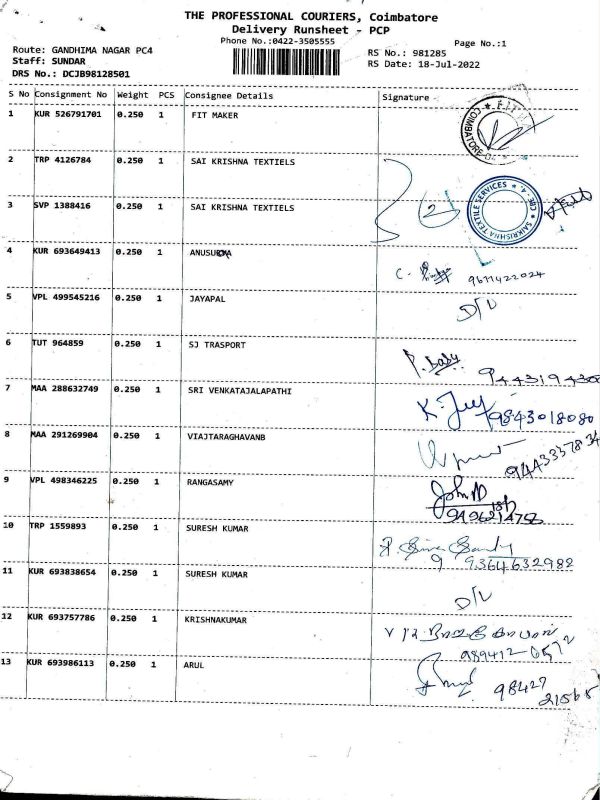 THE PROFESSIONAL COURIERS, Coimbatore
Delivery Runsheet - PCP
Phone No.:0422-3505555
Page No.:1
Route: GANDHIMA NAGAR PC4
RS No.: 981285
Staff: SUNDAR
RS Date: 18-Jul-2022
DRS No.: DCJB98128501
S No Consignment No Weight PCS Consignee Details Signature
1 KUR 526791701 0.250 1 FIT MAKER
2 TRP 4126784 0.250 1 SAI KRISHNA TEXTIELS
3 SVP 1388416 0.250 1 SAI KRISHNA TEXTIELS
2
SAIKRISHNA TEXTILE SERVICES * CBE - 4. *
4 KUR 693649413 0.250 1
C. 9611422024
5 VPL 499545216 0.250 1 JAYAPAL
D/L
6 TUT 964859 0.250 1 SJ TRASPORT
P. Baby
7 MAA 288632749 0.250 1 SRI VENKATAJALAPATHI
9843018080
8 MAA 291269904 0.250 1 VIAJTARAGHAVANB
9 VPL 498346225 0.250 1 RANGASAMY
John
10 TRP 1559893 0.250 1 SURESH KUMAR
9364632982
11 KUR 693838654 0.250 1 SURESH KUMAR
D/L
12 KUR 693757786 0.250 1 KRISHNAKUMAR
13 KUR 693986113 0.250 1 ARUL
98427